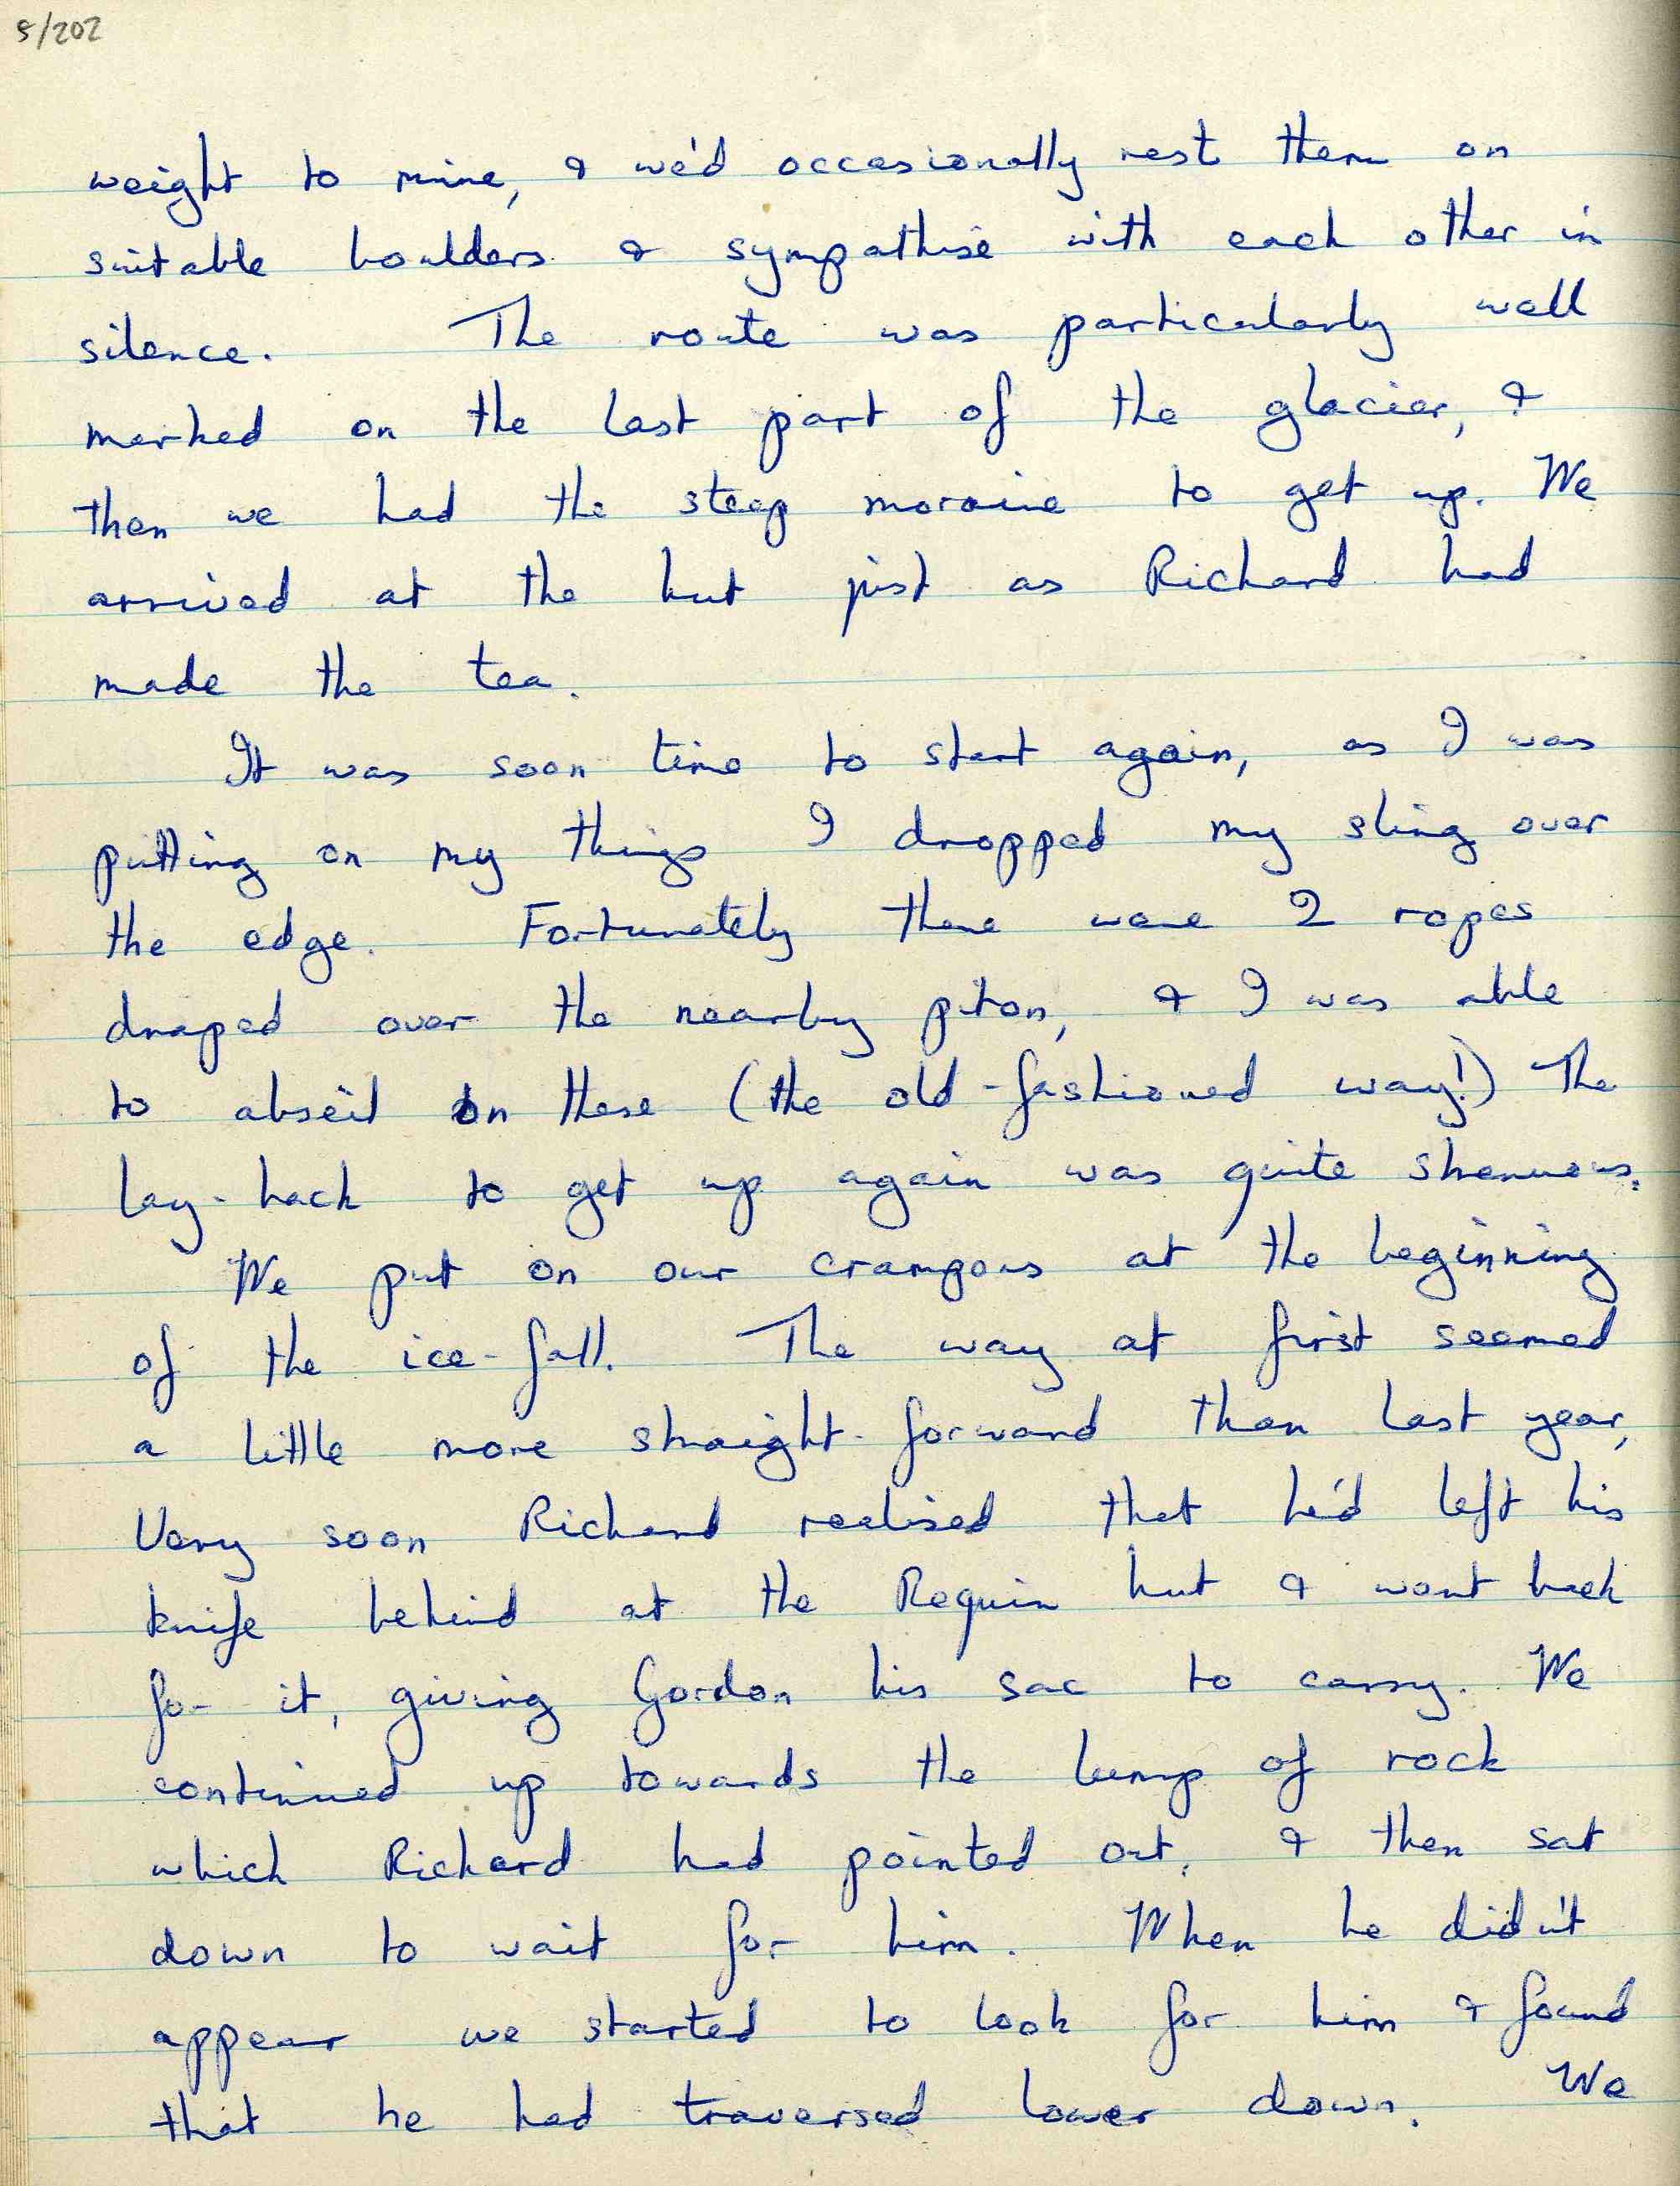 5/202
weight to mine, & we'd occasionally rest them on
suitable boulders & sympathise with each other in
silence. The route was particularly well
marked on the last part of the glacier, &
then we had the steep moraine to get up. We
arrived at the hut just as Richard had
made the tea.
It was soon time to start again, as I was
putting on my things I dropped my sling over
the edge. Fortunately there were 2 ropes
draped over the nearby piton, & I was able
to abseil on these (the old-fashioned way!) The
lay-back to get up again was quite strenuous.
We put on our crampons at the beginning
of the ice-fall. The way at first seemed
a little more straight-forward than last year,
Very soon Richard realised that he'd left his
knife behind at the Requin hut & went back
for it, giving Gordon his sac to carry. We
continued up towards the lump of rock
which Richard had pointed out, & then sat
down to wait for him. When he didn't
appear we started to look for him & found
that he had traversed lower down. We